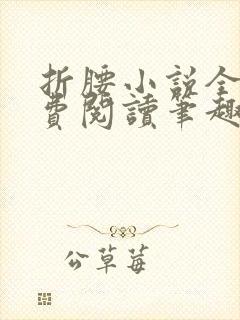 折腰小说全
费閱讀筆趣
公草莓